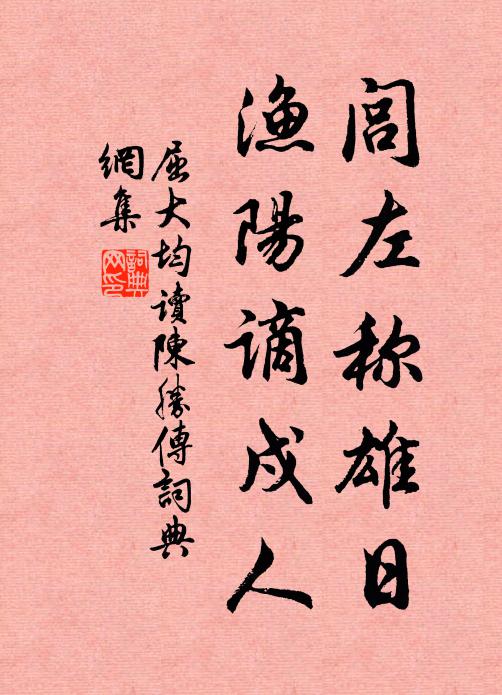 閭左称雄日
漁陽谪戍人
屈大均讀陳勝傳詞典
網集
詞典
网印